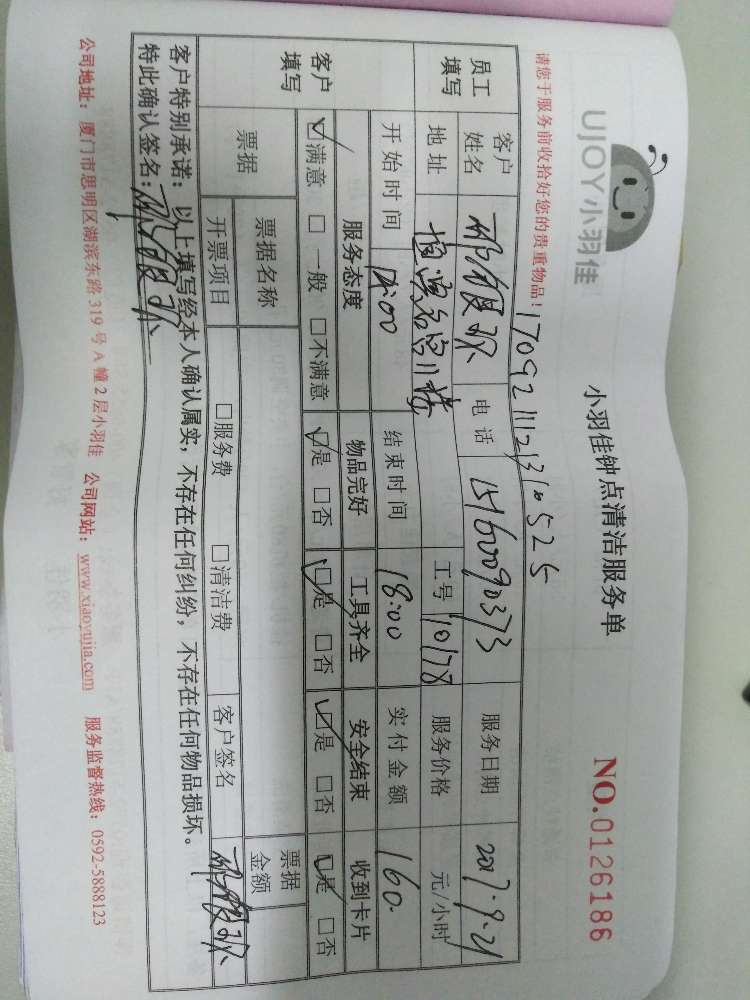 UJOY小羽佳
小羽佳钟点清洁服务单
NO.0126186
请您于服务前收拾好您的贵重物品！
员工填写 客户姓名 电话 15160090373 服务日期 2017.9.21
地址 工号 10178 服务价格 元/小时
开始时间 14:00 结束时间 18:00 实付金额 160.
客户填写 服务态度 物品完好 工具齐全 安全结束 收到卡片
☑满意 □一般 □不满意 ☑是 □否 ☑是 □否 ☑是 □否 ☑是 □否
票据 票据名称 票据金额
开票项目 □服务费 □清洁费 客户签名
客户特别承诺：以上填写经本人确认属实，不存在任何纠纷，不存在任何物品损坏。
特此确认签名：
公司地址：厦门市思明区湖滨东路 319 号 A 幢 2 层小羽佳 公司网站：www.xiaoyujia.com 服务监督热线：0592-5888123